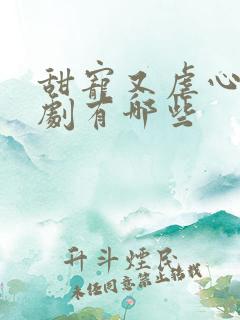 甜寵又虐心
劇有哪些
升斗煙民
未经同意禁止转载